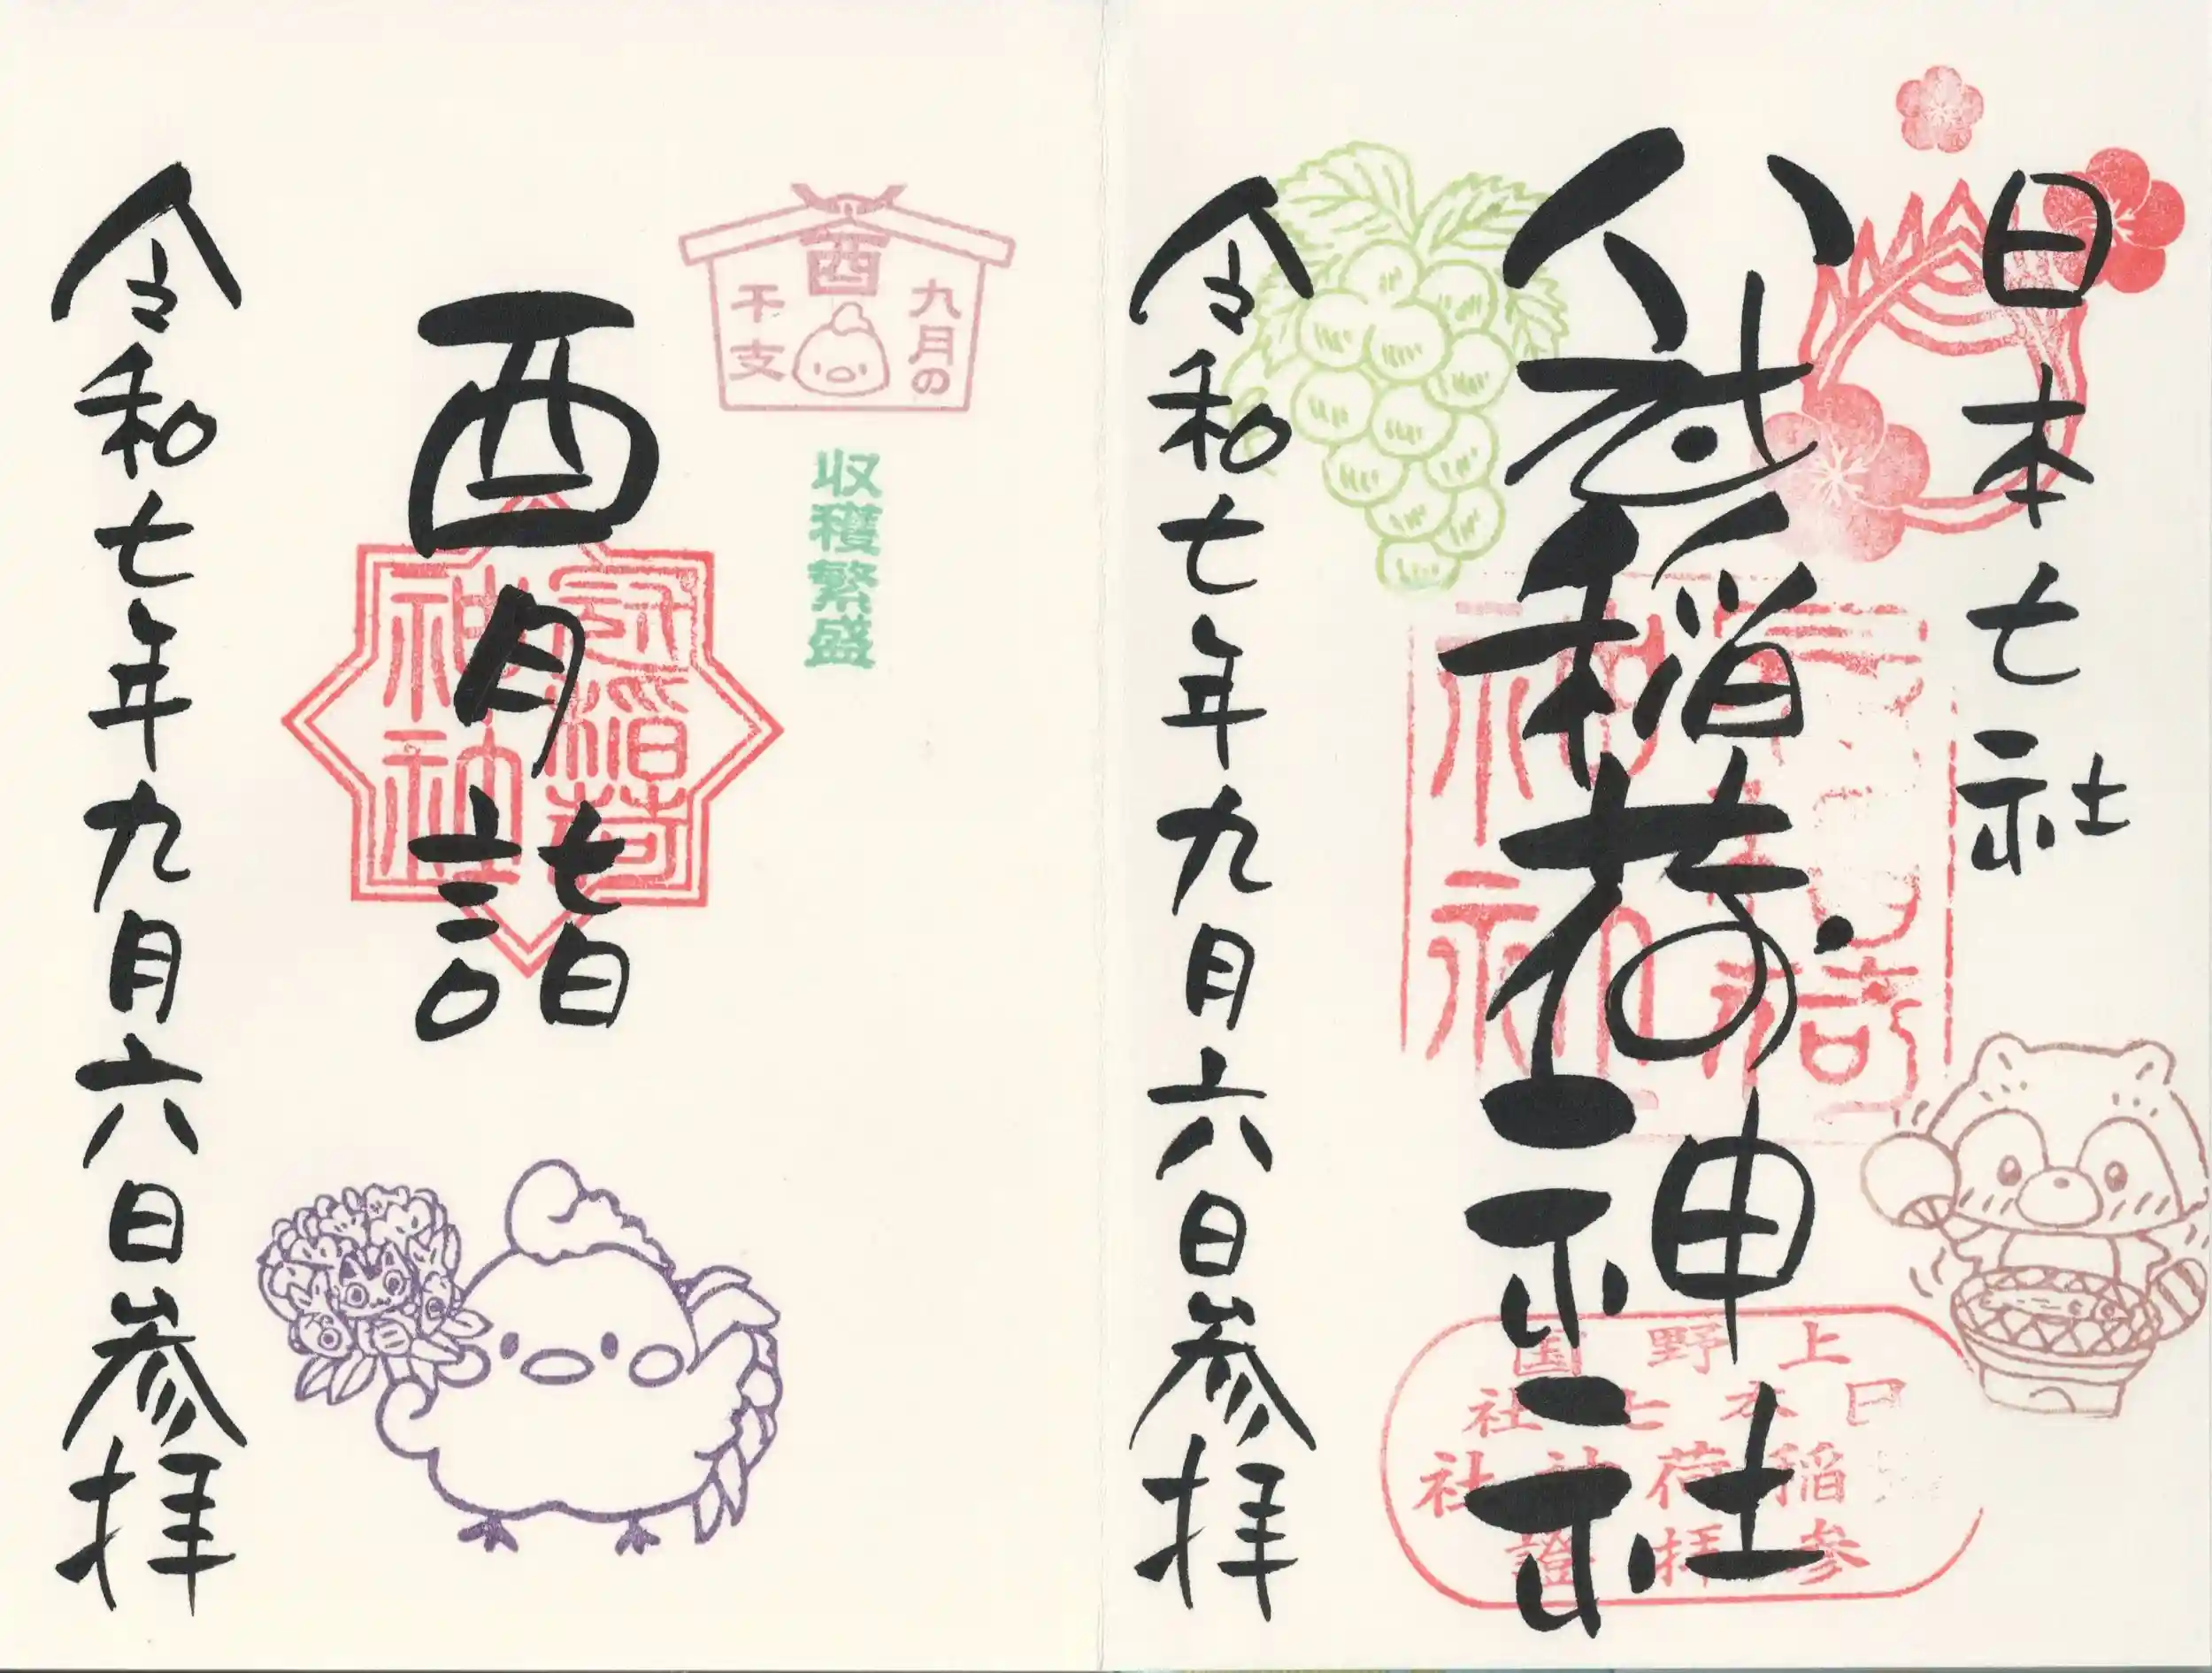 日本七社
冠稲荷神社
令和七年九月六日参拝
上野国
日本七社
稲荷神社
参拝證
九月の
酉
干支
収穫繁盛
酉月詣
冠稲荷
神社
令和七年九月六日参拝